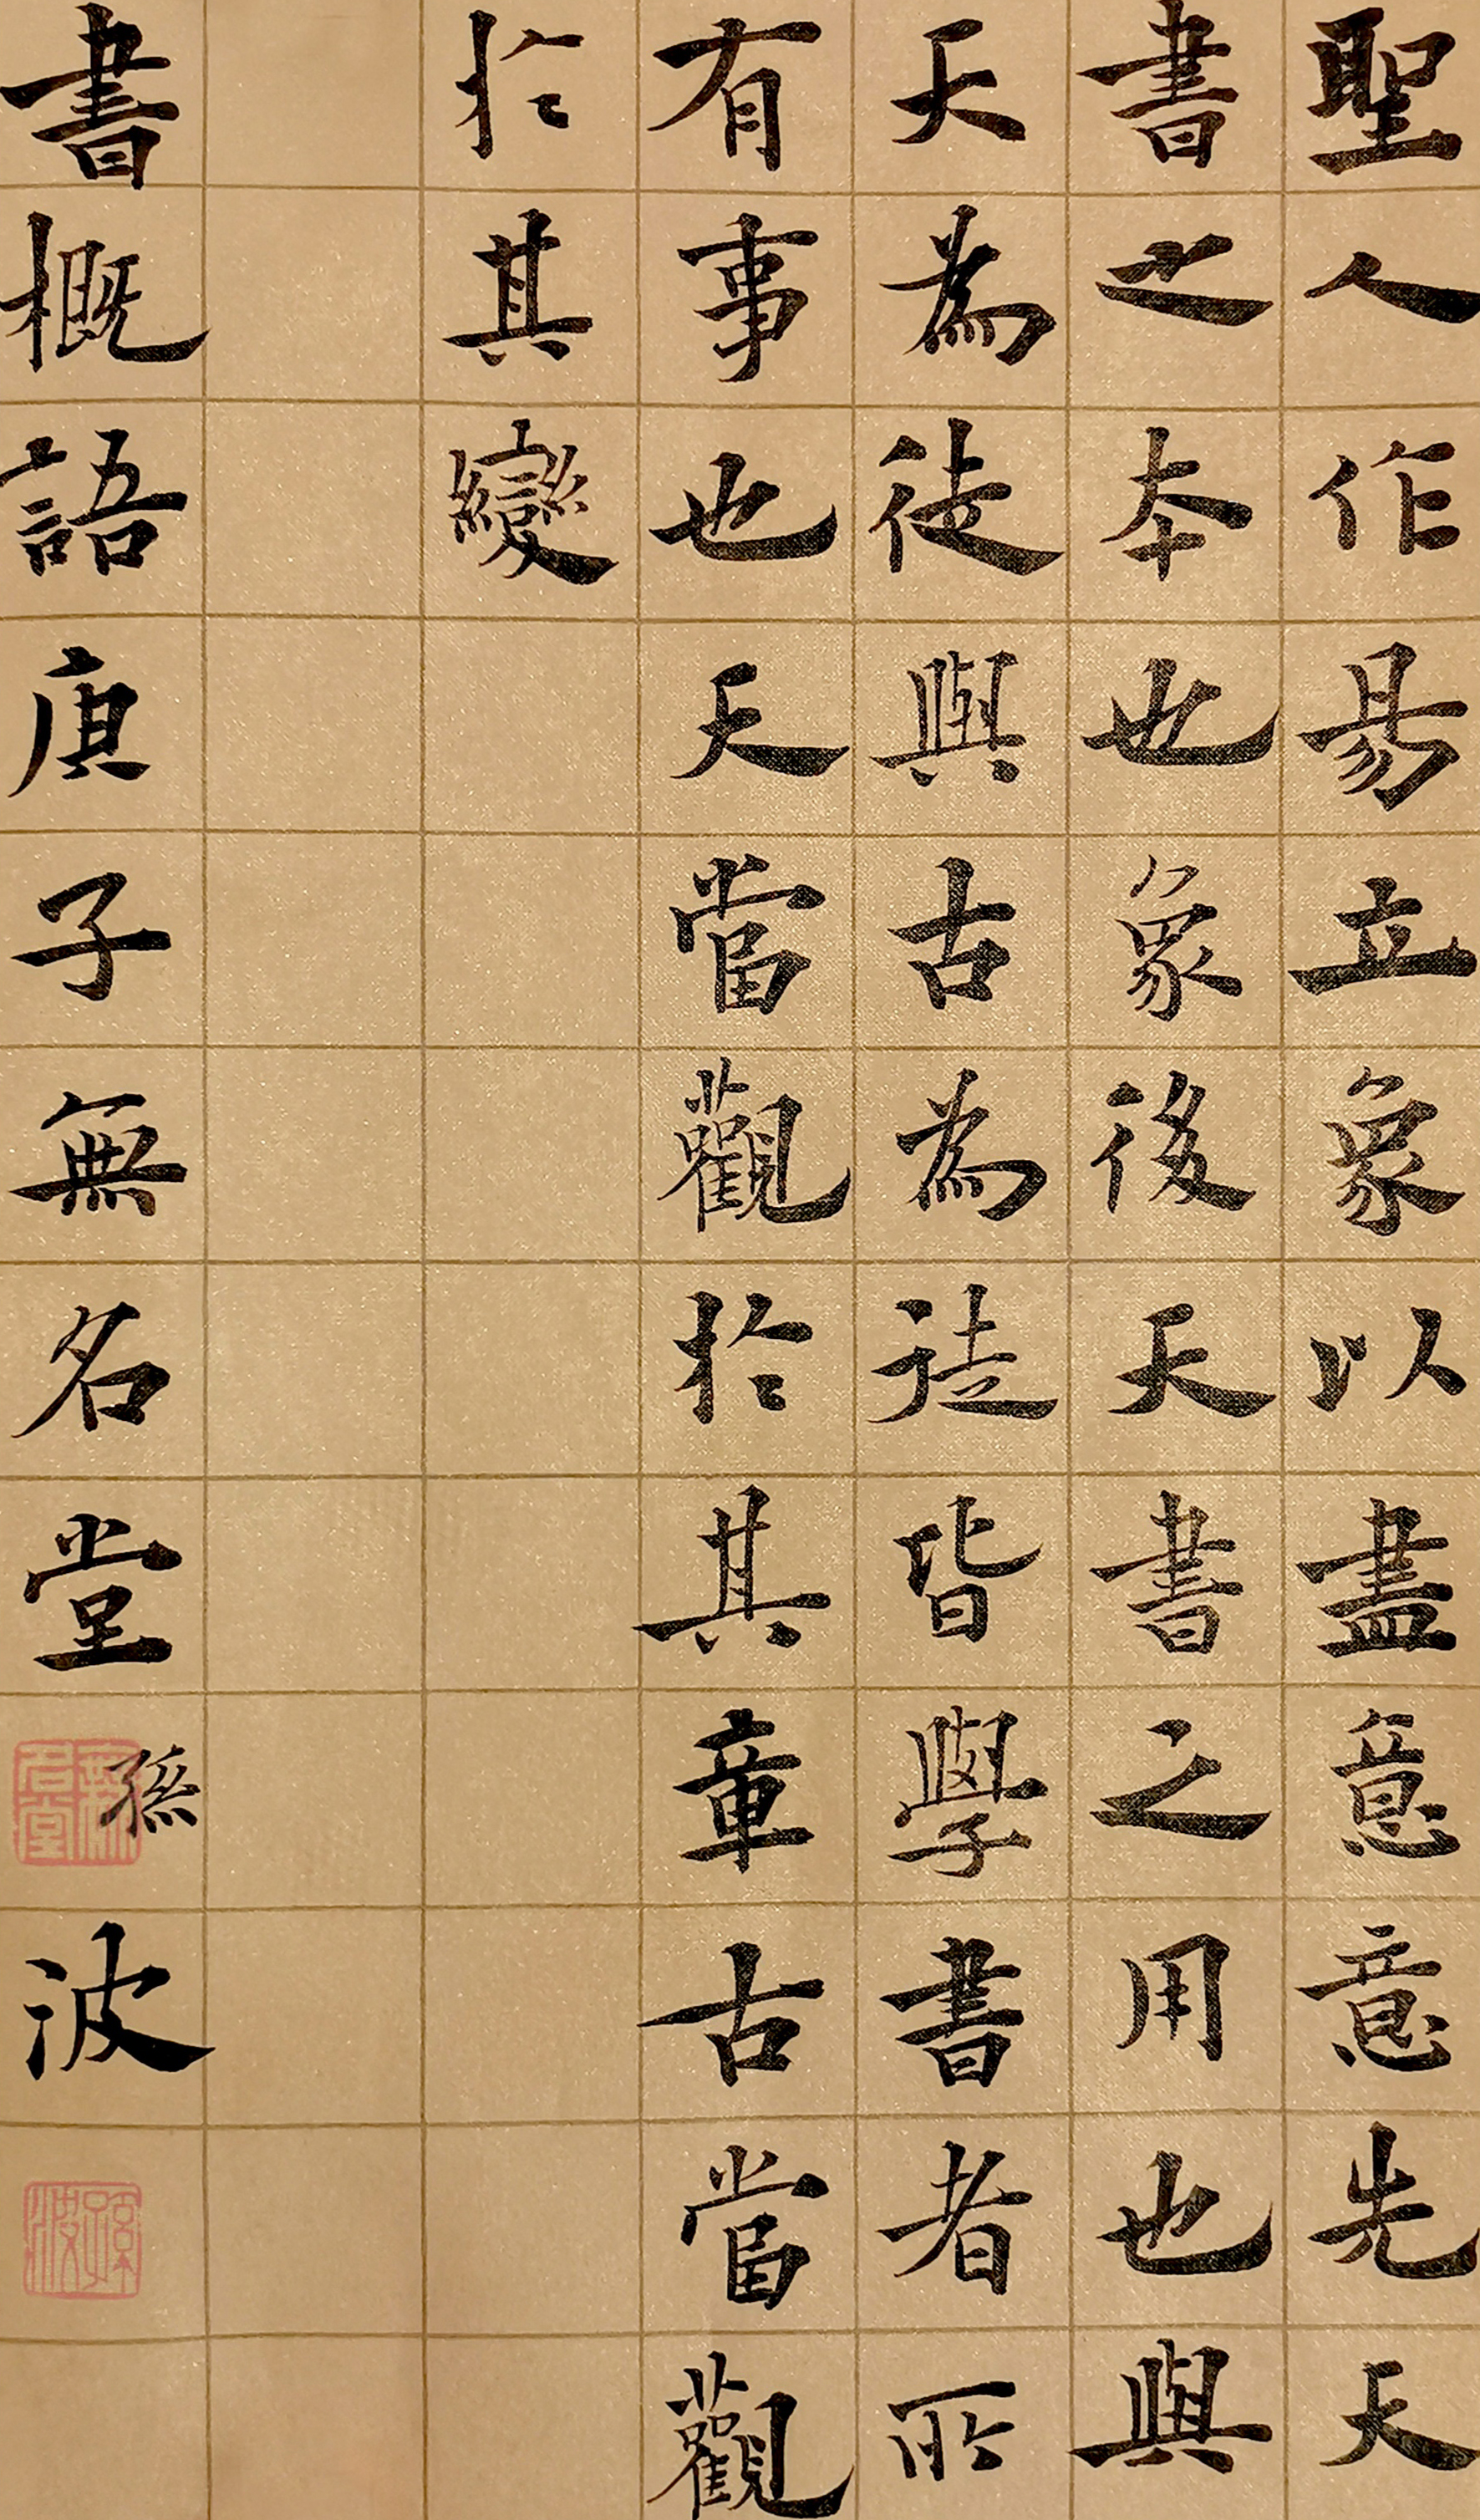 聖人作易立象以盡意意先天
書之本也象後天書之用也與
天為徒與古為徒皆學書者所
有事也天當觀於其章古當觀
於其變
書概語庚子無名堂孫波
無名堂
孫波